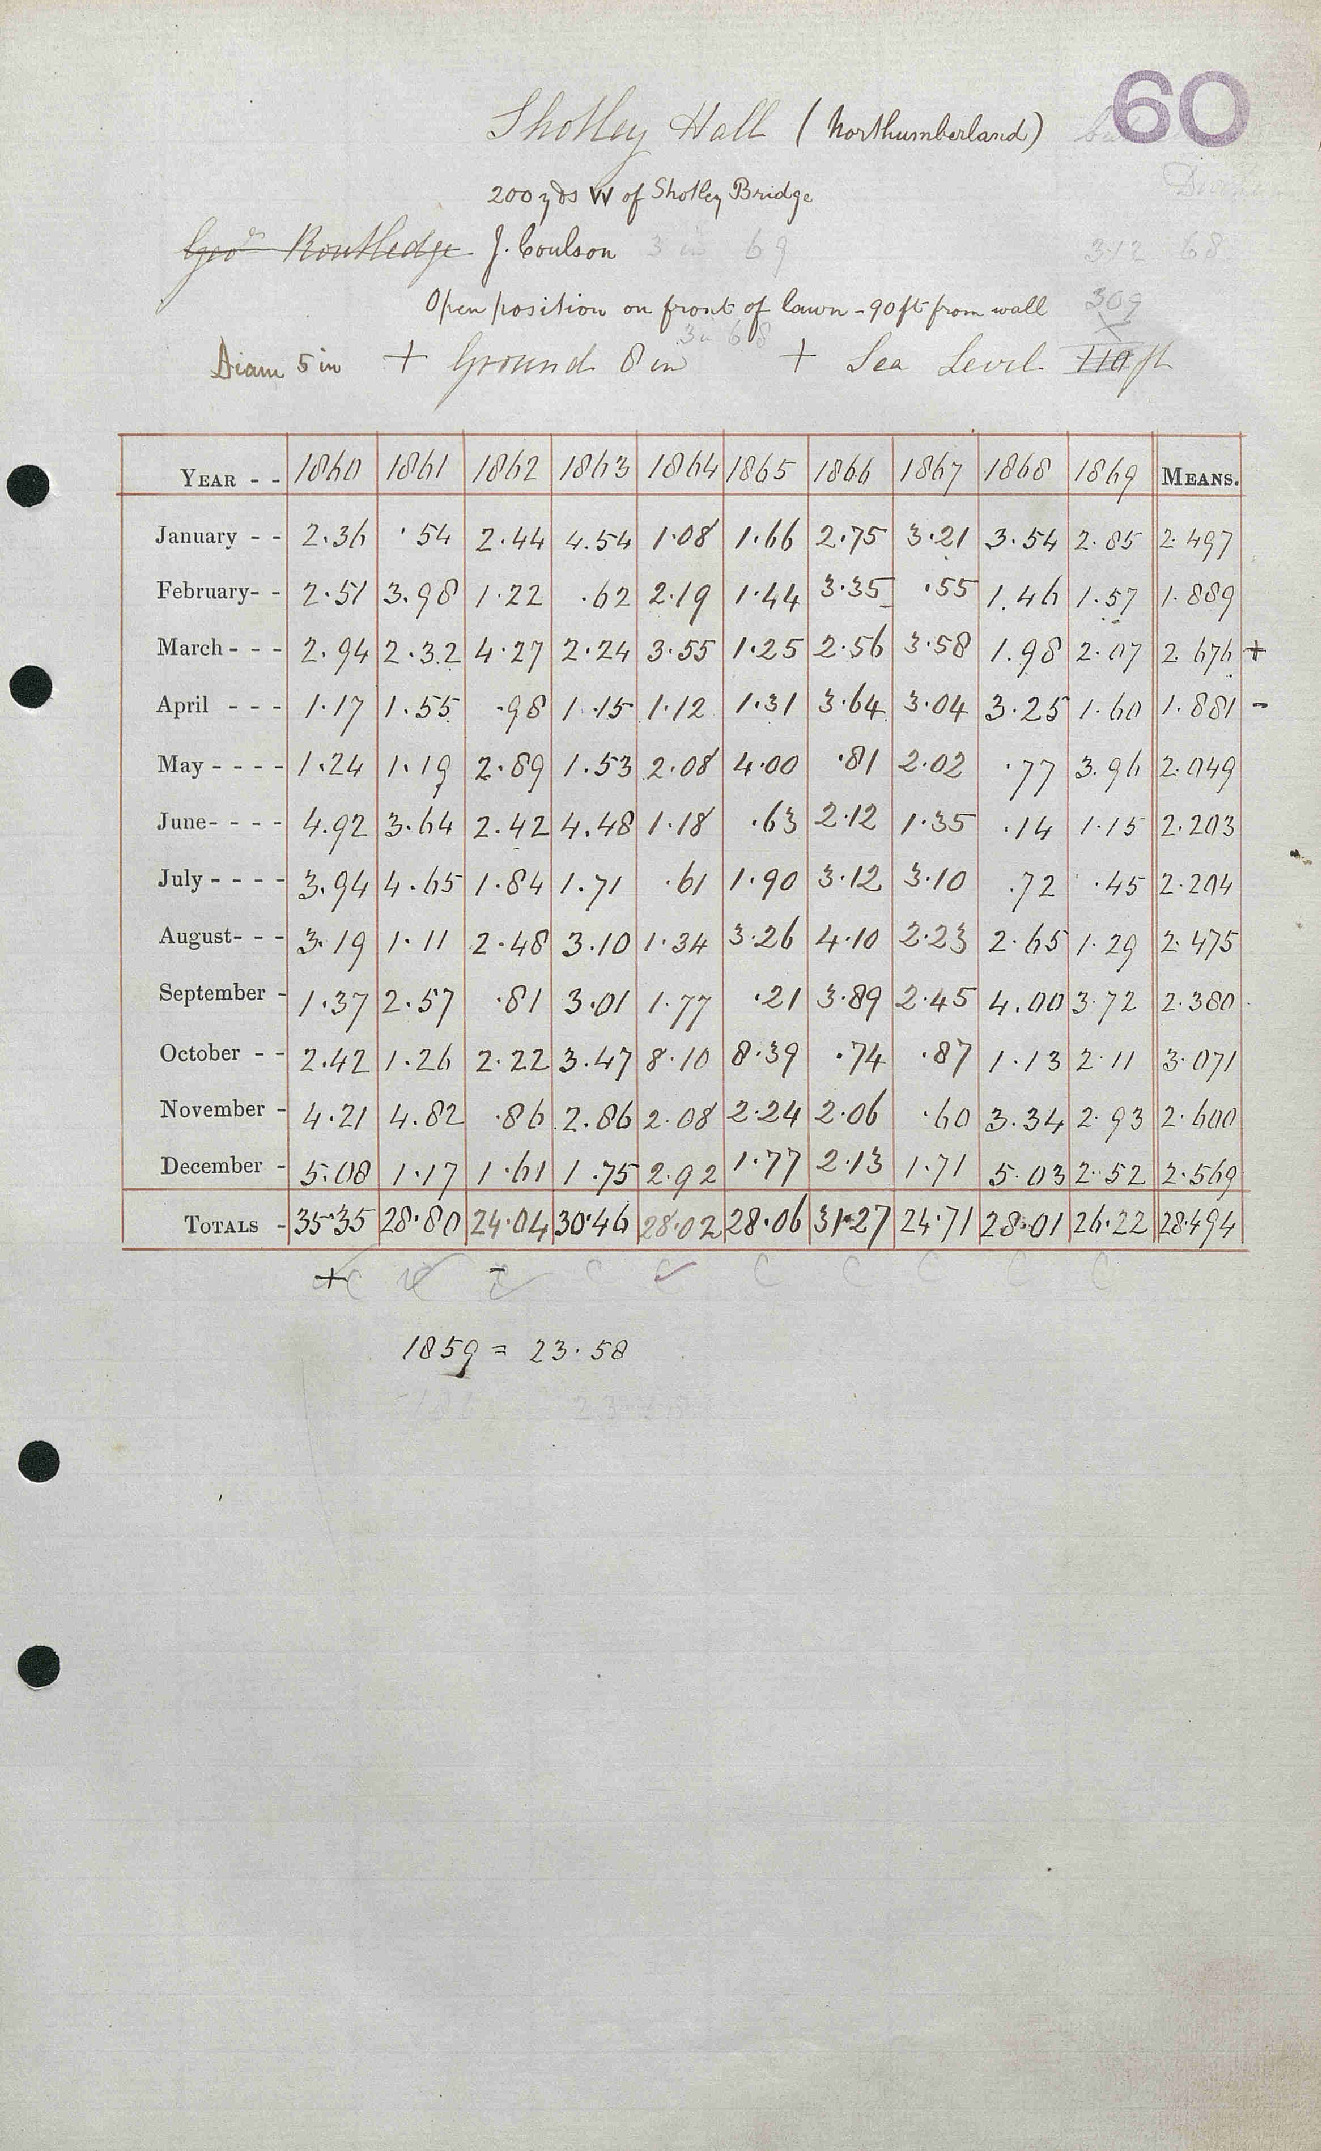 60
Shotley Hall (Northumberland)
200 yds W of Shotley Bridge
Geo Routledge J. Coulson 3 in 69 312 68
Open position on front of lawn - 90ft from wall 309
3 in 68
Diam 5 in + Ground 8 in + Sea Level 110 ft
YEAR - - 1860 1861 1862 1863 1864 1865 1866 1867 1868 1869 MEANS.
January - - 2.36 .54 2.44 4.54 1.08 1.66 2.75 3.21 3.54 2.85 2.497
February- - 2.51 3.98 1.22 .62 2.19 1.44 3.35 .55 1.46 1.57 1.889
March - - - 2.94 2.32 4.27 2.24 3.55 1.25 2.56 3.58 1.98 2.07 2.676 +
April - - - 1.17 1.55 .98 1.15 1.12 1.31 3.64 3.04 3.25 1.60 1.881 -
May - - - - 1.24 1.19 2.89 1.53 2.08 4.00 .81 2.02 .77 3.96 2.049
June- - - - 4.92 3.64 2.42 4.48 1.18 .63 2.12 1.35 .14 1.15 2.203
July - - - - 3.94 4.65 1.84 1.71 .61 1.90 3.12 3.10 .72 .45 2.204
August- - - 3.19 1.11 2.48 3.10 1.34 3.26 4.10 2.23 2.65 1.29 2.475
September - 1.37 2.57 .81 3.01 1.77 .21 3.89 2.45 4.00 3.72 2.380
October - - 2.42 1.26 2.22 3.47 8.10 8.39 .74 .87 1.13 2.11 3.071
November - 4.21 4.82 .86 2.86 2.08 2.24 2.06 .60 3.34 2.93 2.600
December - 5.08 1.17 1.61 1.75 2.92 1.77 2.13 1.71 5.03 2.52 2.569
TOTALS - 35.35 28.80 24.04 30.46 28.02 28.06 31.27 24.71 28.01 26.22 28.494
+ c c - c c c c c c c c
1859 = 23.58